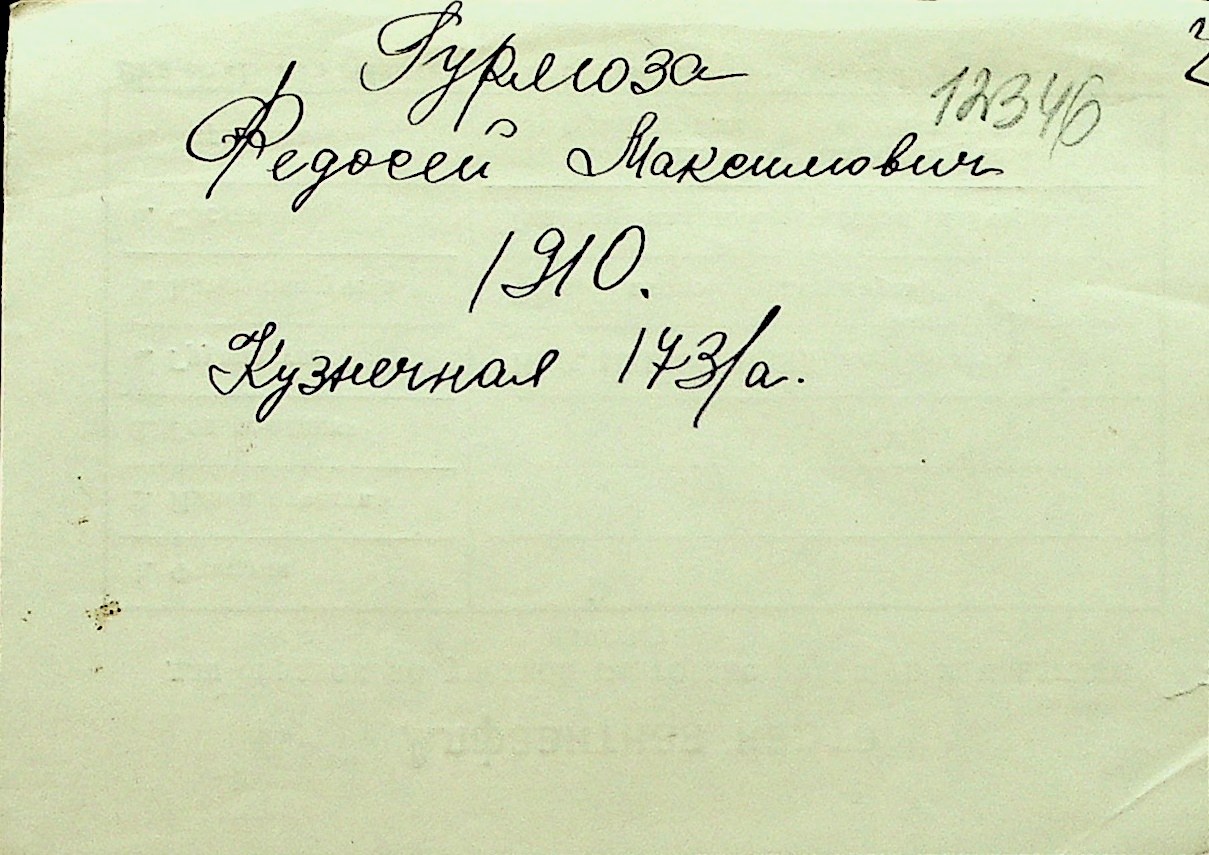 Гурлоза
12346
Федосей Максимович
1910.
Кузнечная 173/а.